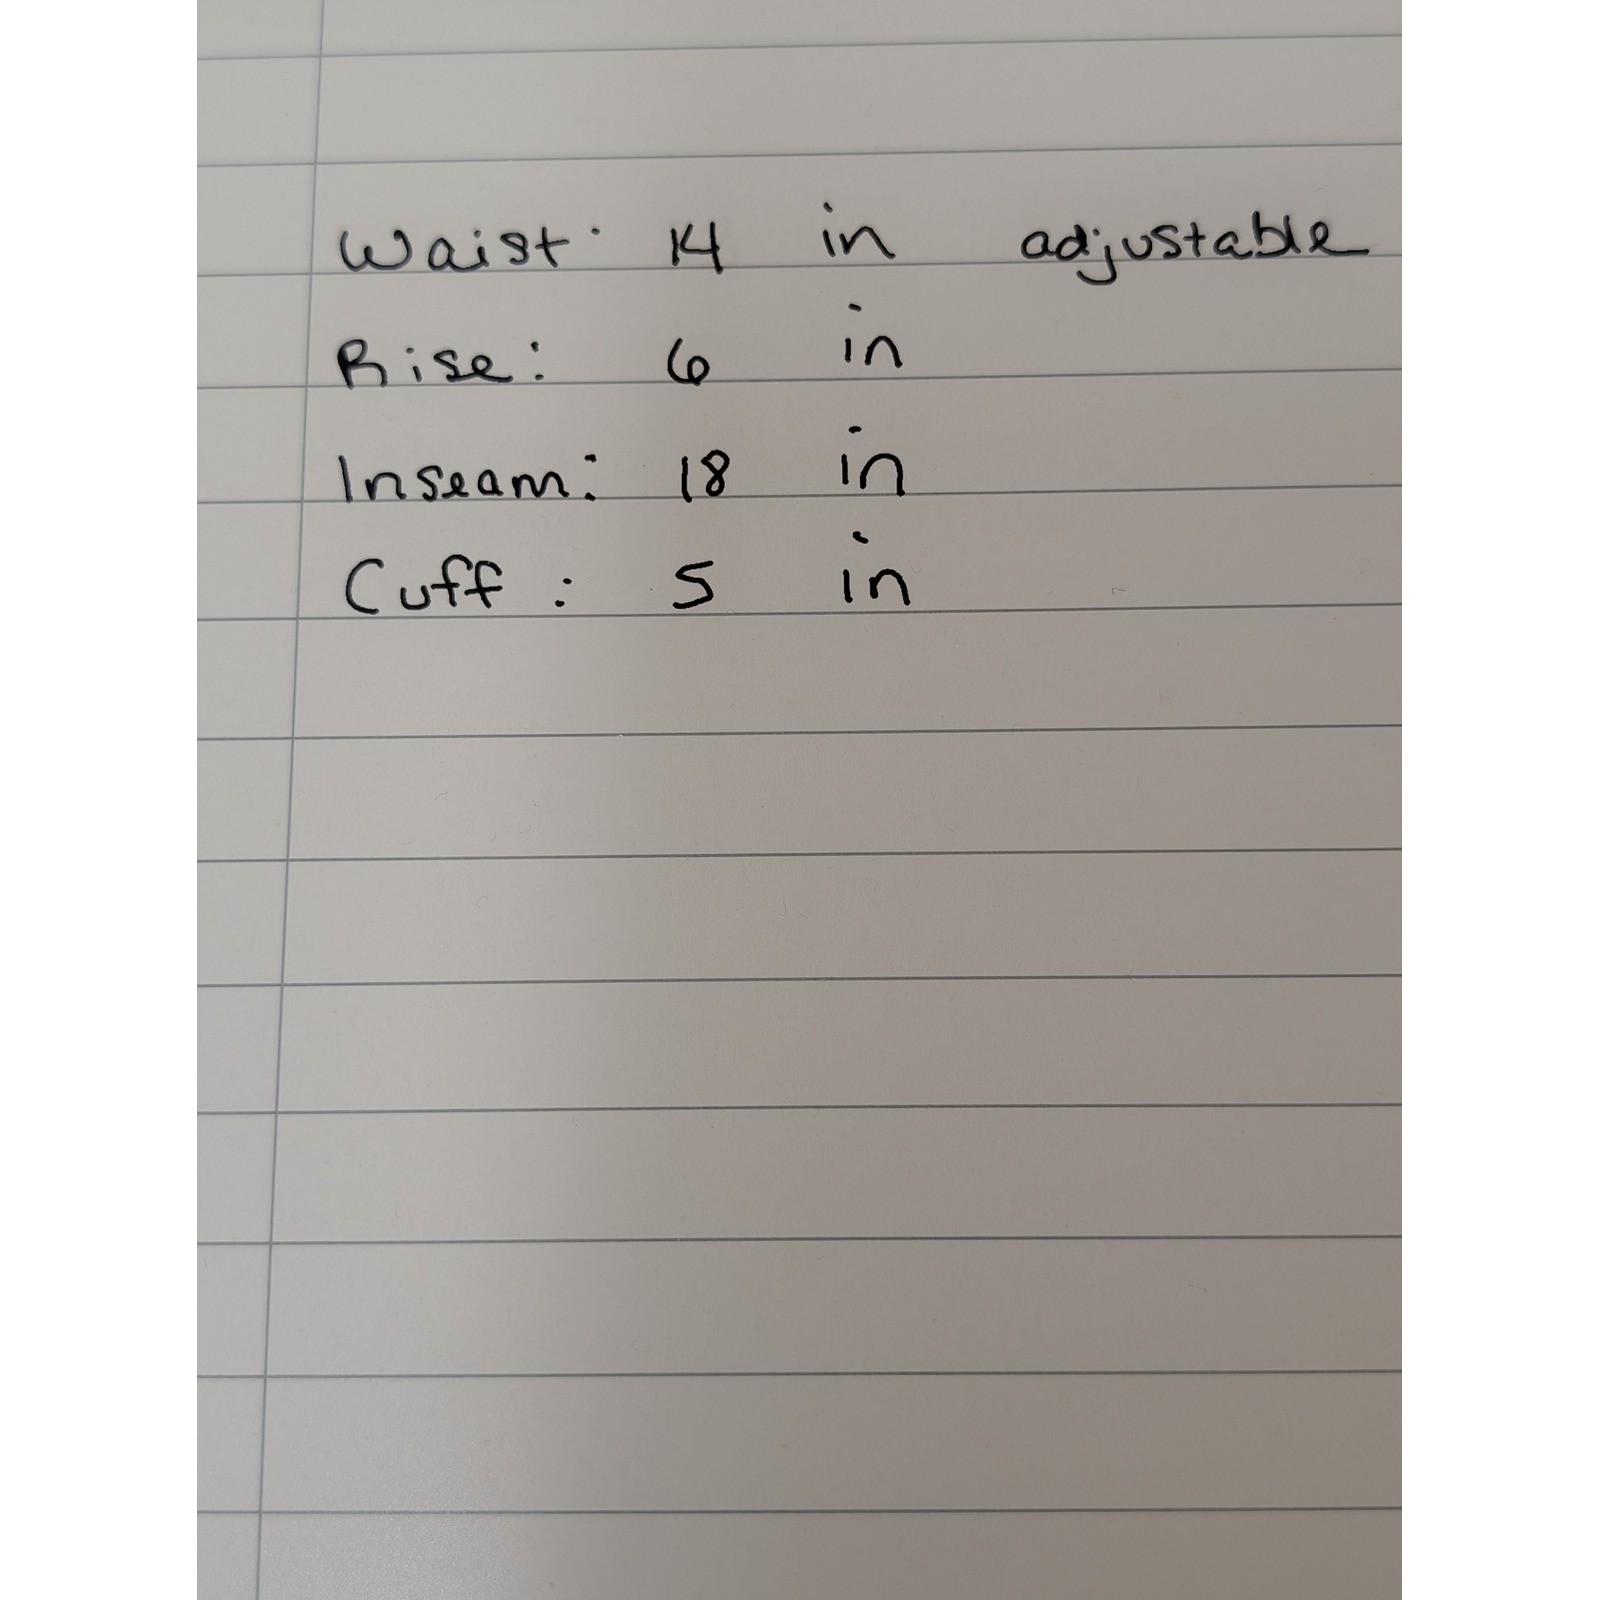 Waist: 14 in adjustable
Rise: 6 in
Inseam: 18 in
Cuff: 5 in